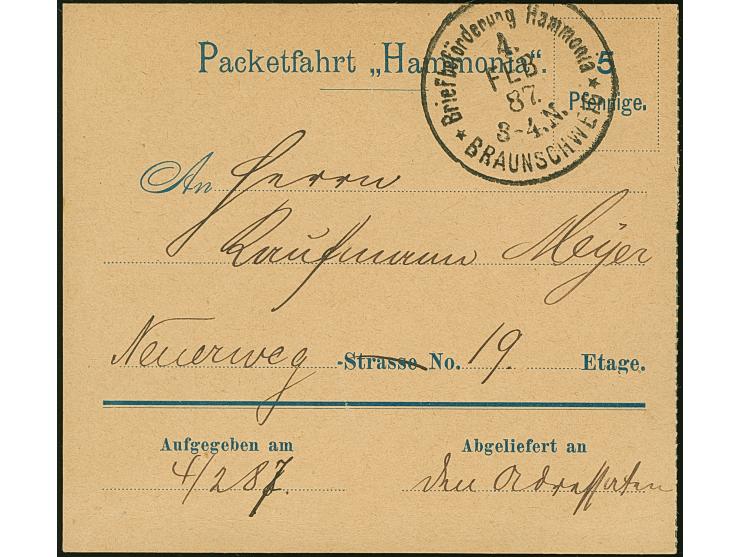 Packetfahrt „Hammonia“.
5
Pfennige.
Briefbeförderung Hammonia
4.
FEB.
87.
3-4.N.
* BRAUNSCHWEIG *
An Herrn
Kaufmann Meyer
Neuerweg -Strasse No. 19. Etage.
Aufgegeben am
4/2 87.
Abgeliefert an
den Adressaten